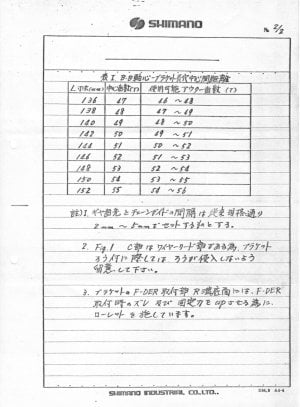 SHIMANO
No 2/2
表I. B.B軸心-ブラケット穴中心間距離
L寸法(mm) 中心歯数(T) 使用可能アウター歯数(T)
136 47 46 ～ 48
138 48 47 ～ 49
140 49 48 ～ 50
142 50 49 ～ 51
144 51 50 ～ 52
146 52 51 ～ 53
148 53 52 ～ 54
150 54 53 ～ 55
152 55 54 ～ 56
註) 1. ギヤ歯先とチェーンガイドの間隔は従来規格通り
2mm ～ 5mm
2. Fig.1 C部はワイヤーリード部がある為、ブラケット
ろう付に際しては ろうが侵入しないよう
留意して下さい。
3. ブラケットのF-DER取付部R溝底面には、F-DER
取付時のズレ及び固定力をupさせる為に、
ローレットを施しています。
SHIMANO INDUSTRIAL CO., LTD.